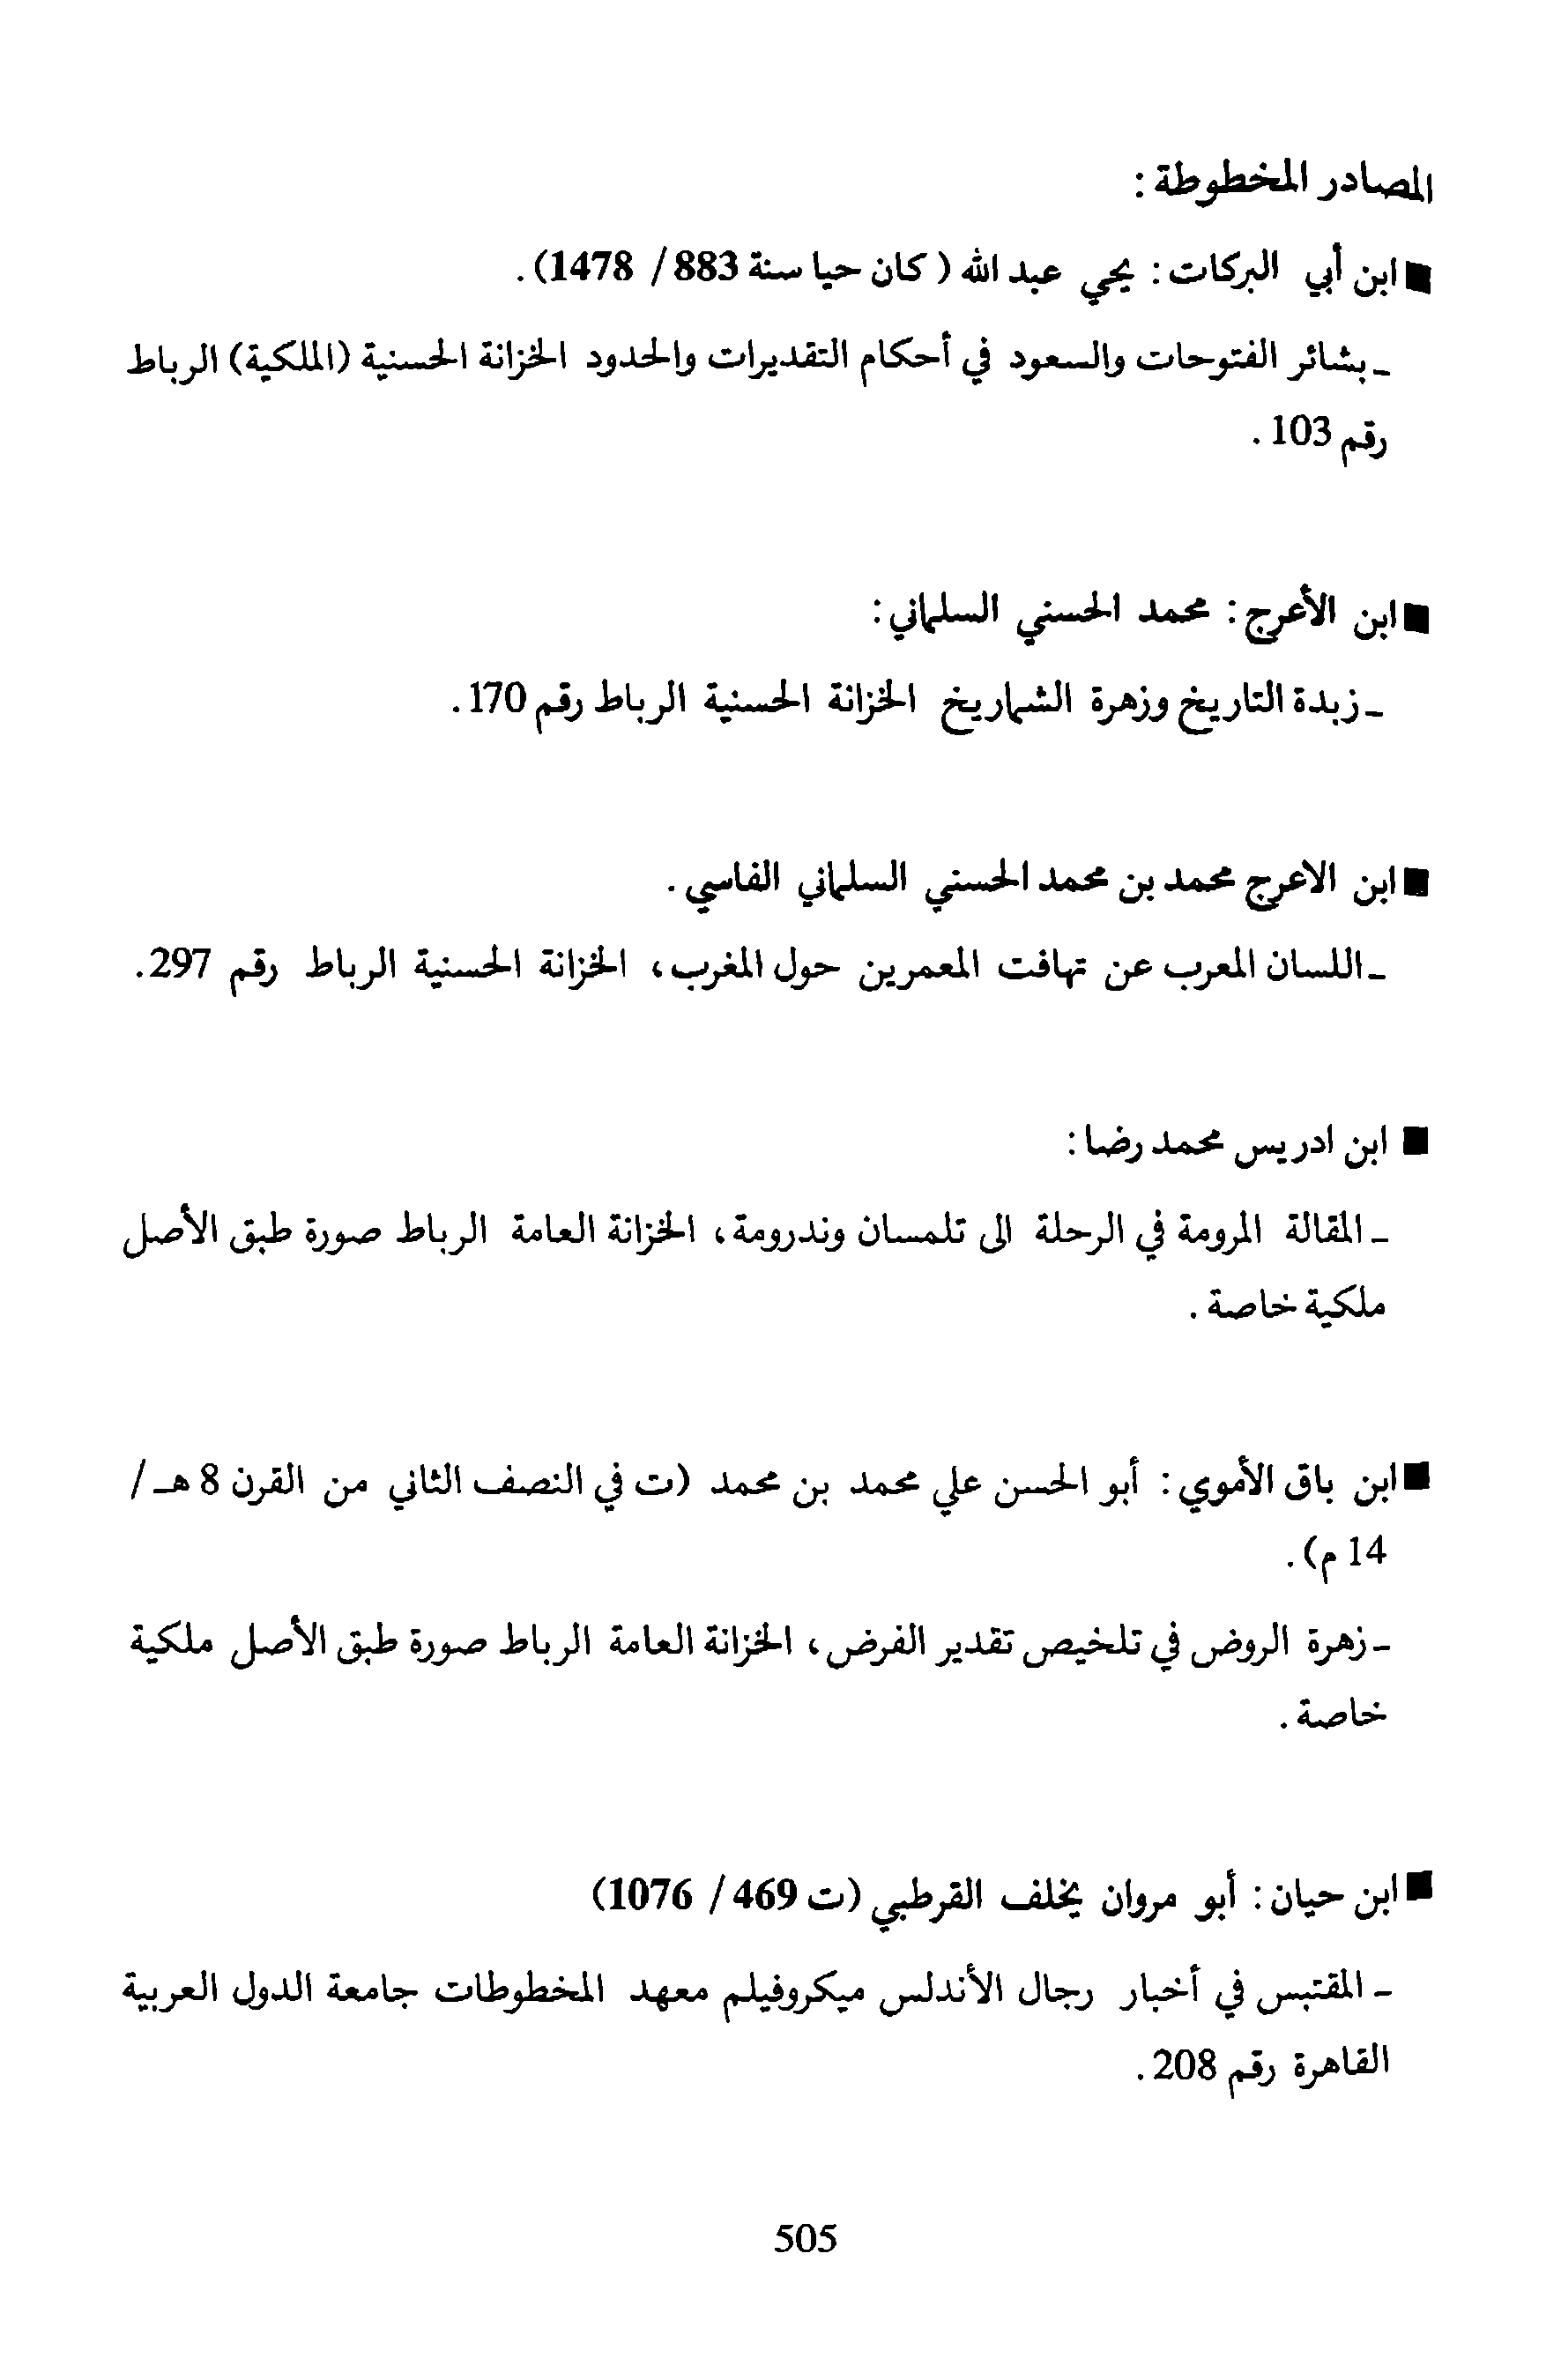 المصادر المخطوطة :
■ ابن أبي البركات : يحي عبد الله ( كان حيا سنة 883 / 1478) .
ـ بشائر الفتوحات والسعود في أحكام التقديرات والحدود الخزانة الحسنية (الملكية) الرباط
رقم 103 .
■ ابن الأعرج : محمد الحسني السليماني :
ـ زبدة التاريخ وزهرة الشماريخ الخزانة الحسنية الرباط رقم 170 .
■ ابن الاعرج محمد بن محمد الحسني السليماني الفاسي .
ـ اللسان المعرب عن تهافت المعمرين حول المغرب ، الخزانة الحسنية الرباط رقم 297 .
■ ابن ادريس محمد رضا :
ـ المقالة المرومة في الرحلة الى تلمسان وندرومة ، الخزانة العامة الرباط صورة طبق الأصل
ملكية خاصة .
■ ابن باق الأموي : أبو الحسن علي محمد بن محمد (ت في النصف الثاني من القرن 8 هـ /
14 م) .
ـ زهرة الروض في تلخيص تقدير الفرض ، الخزانة العامة الرباط صورة طبق الأصل ملكية
خاصة .
■ ابن حيان : أبو مروان يخلف القرطبي (ت 469 / 1076)
ـ المقتبس في أخبار رجال الأندلس ميكروفيلم معهد المخطوطات جامعة الدول العربية
القاهرة رقم 208 .
505